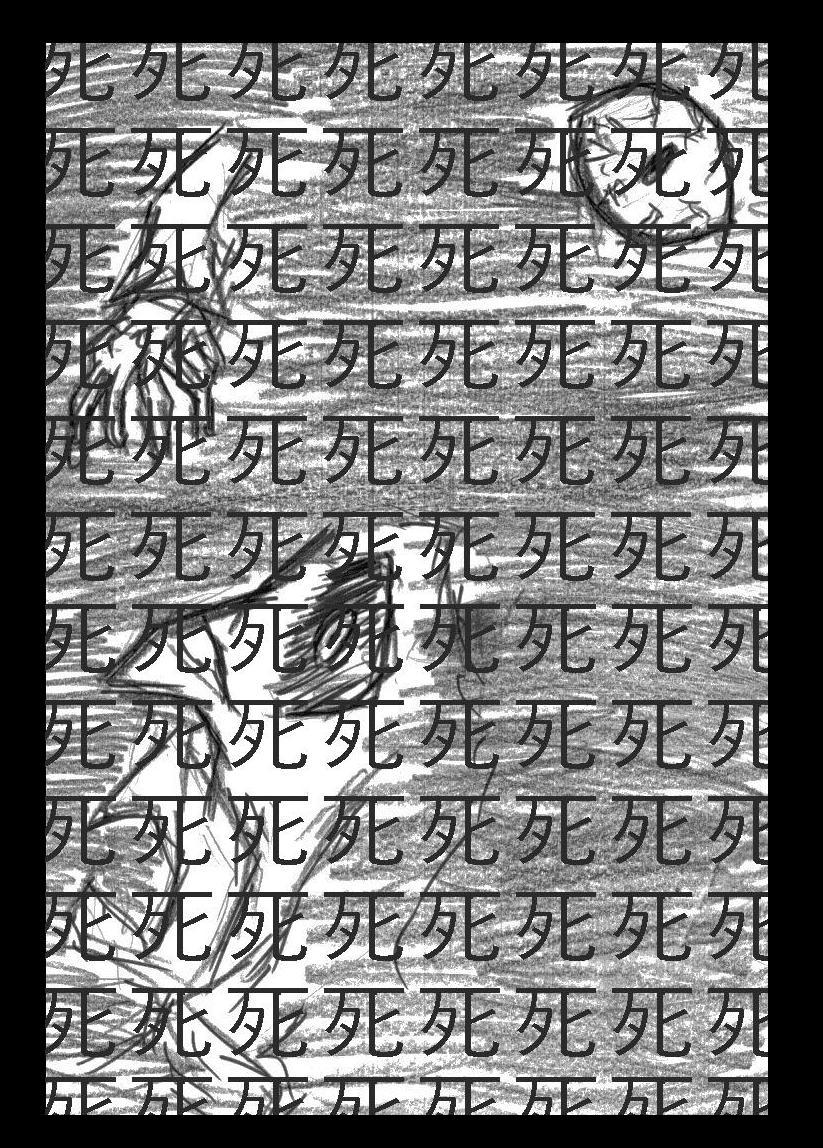 死死死死死死死死
死死死死死死死死
死死死死死死死死
死死死死死死死死
死死死死死死死死
死死死死死死死死
死死死死死死死死
死死死死死死死死
死死死死死死死死
死死死死死死死死
死死死死死死死死
死死死死死死死死